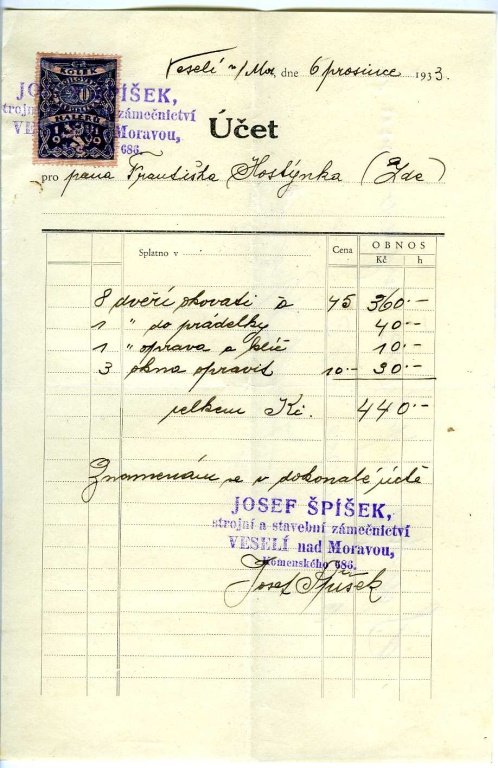 Veselí n/Mor. dne 6 prosince 1933.
KOLEK
HALÉŘŮ
1919
JOSEF ŠPÍŠEK,
strojní zámečnictví
VESELÍ Moravou,
686.
Účet
pro pana Františka Hostýnka (Zde)
Splatno v Cena OBNOS
Kč h
8 dveří okovati a 45 360.-
1 " do prádelky 40.-
1 " oprava a klíč 10.-
3 okna opravit 10.- 30.-
celkem Kč. 440.-
Znamenám se v dokonalé úctě
JOSEF ŠPÍŠEK,
strojní a stavební zámečnictví
VESELÍ nad Moravou,
Komenského 686.
Josef Špíšek